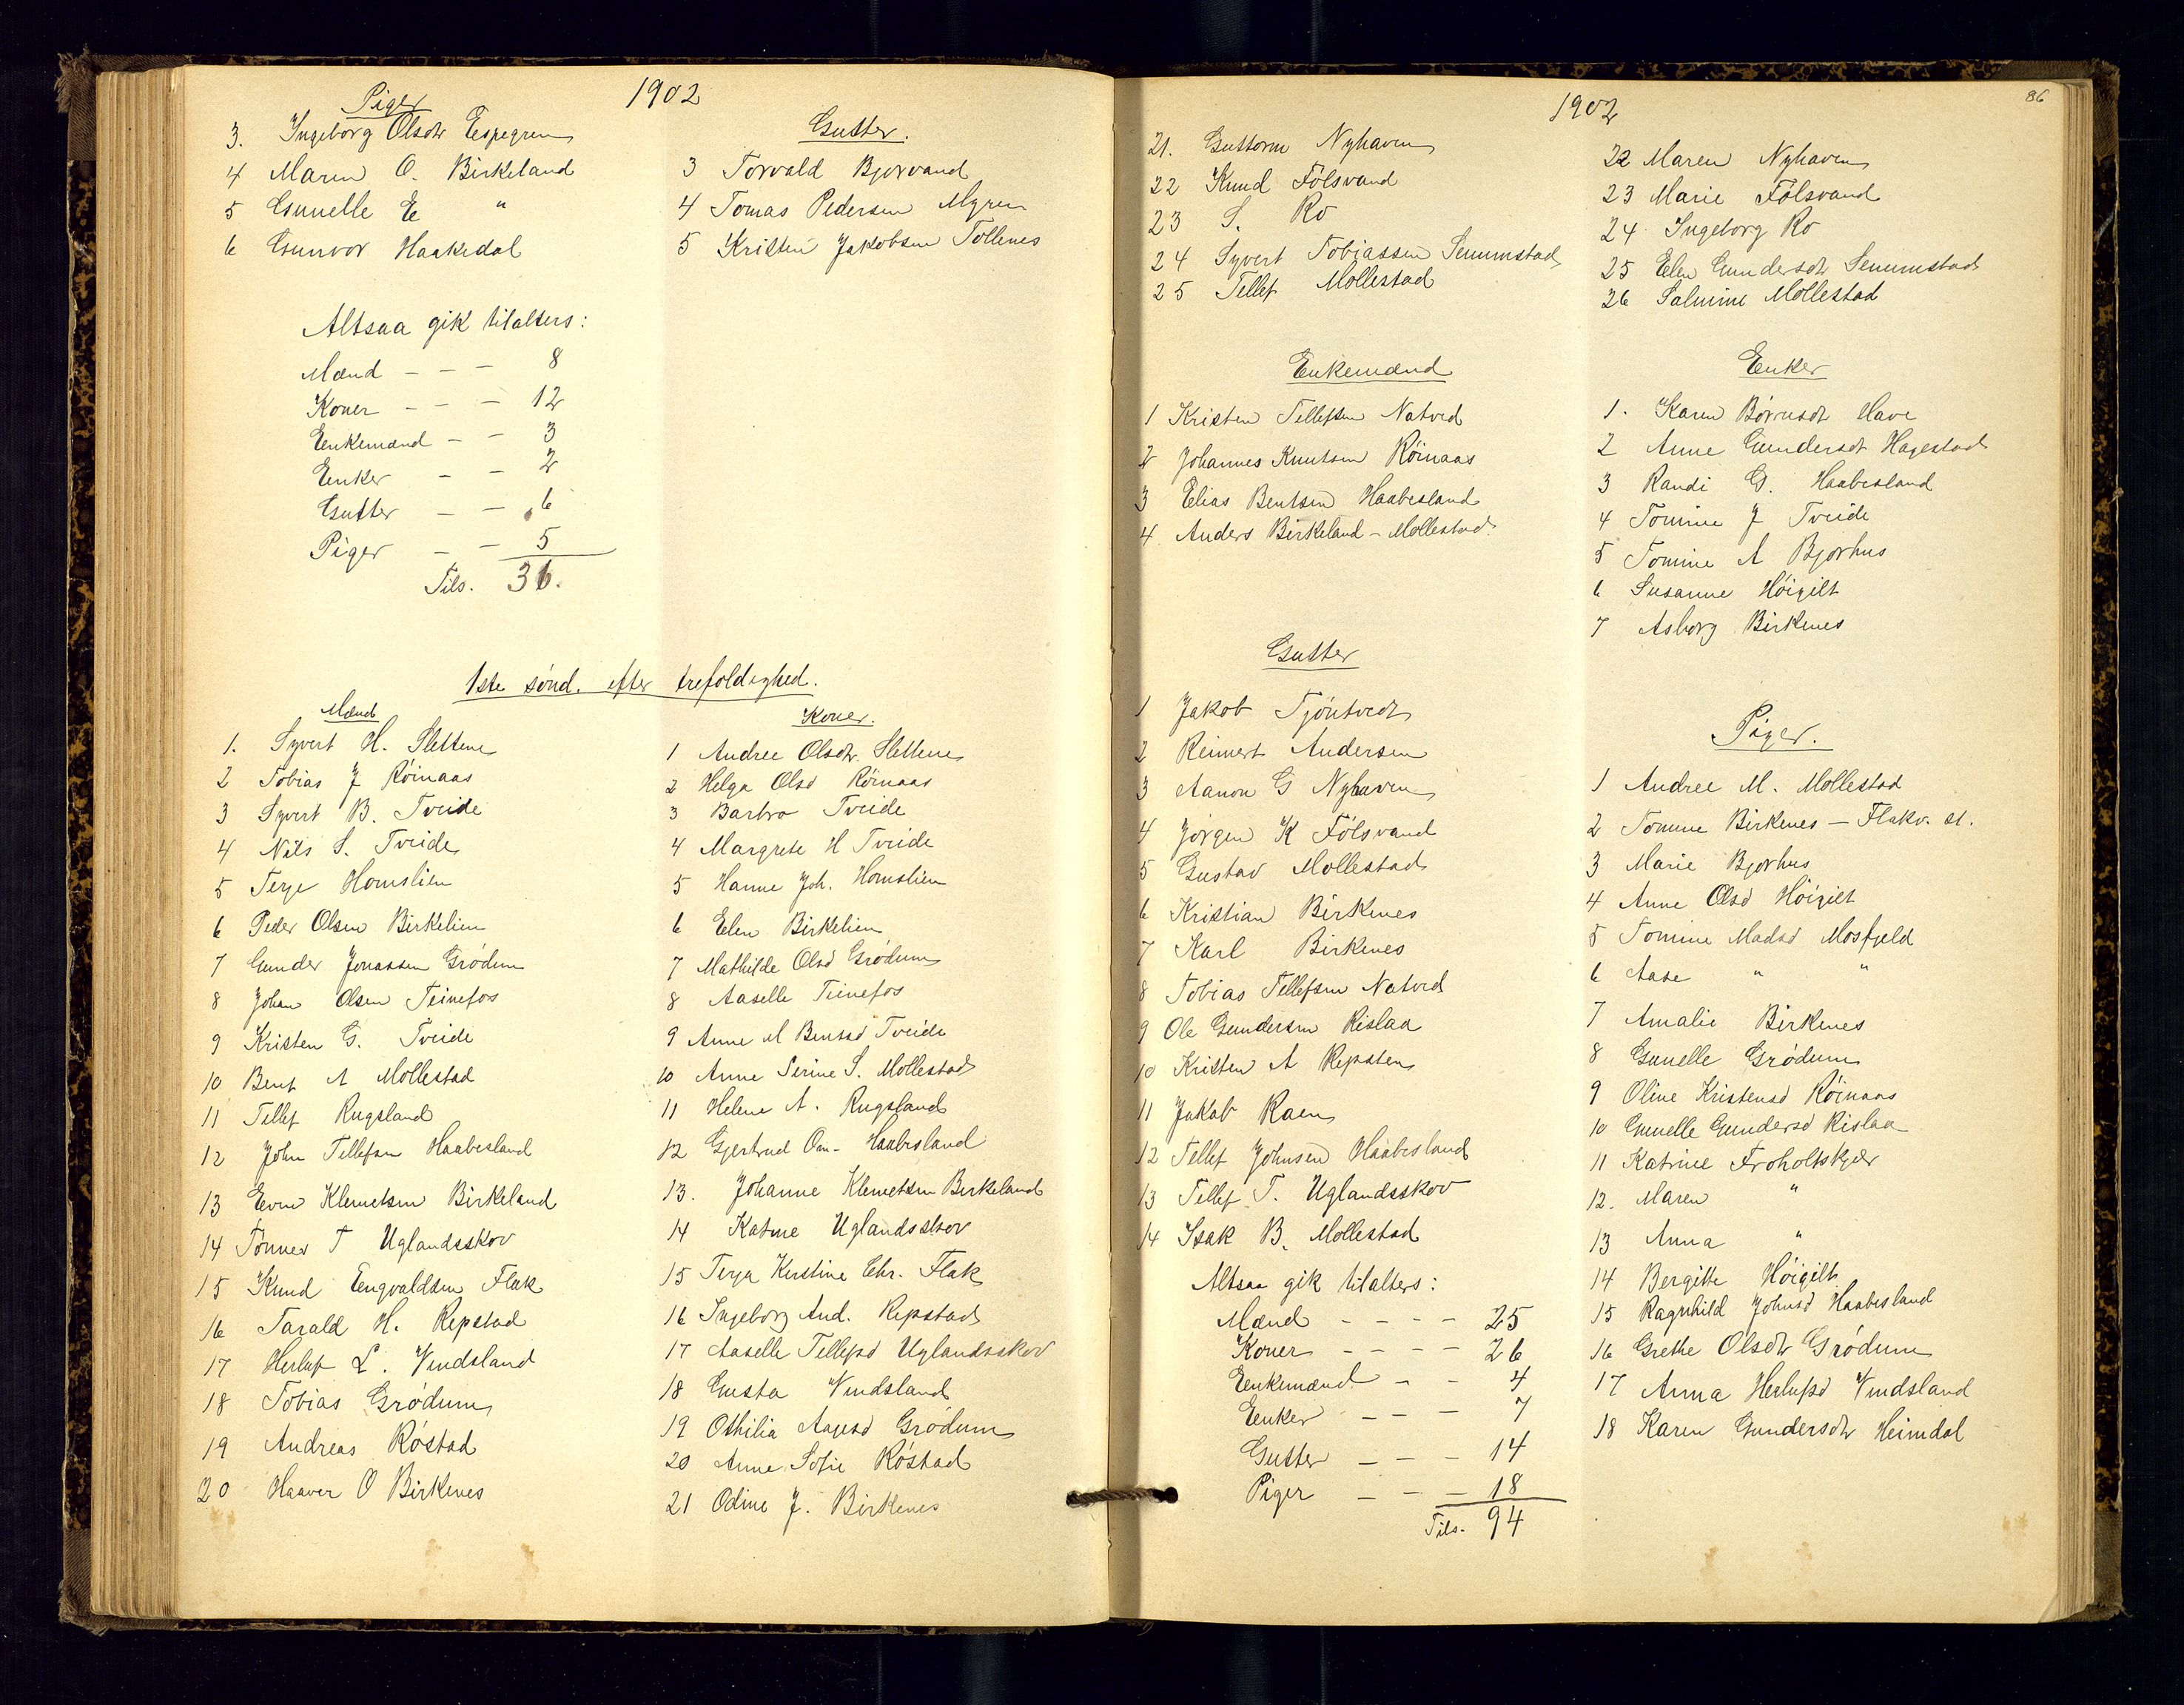 1902
Piger
3. Ingeborg Olsdtr Espegren
4 Maren O. Birkeland
5 Gunuelle E "
6 Gunvor Haakedal
Gutter.
3 Torvald Bjorvand
4 Tomas Pedersen Myren
5 Kristen Jakobsen Tollenes
Altsaa gik tilalters:
Mænd - - - 8
Koner - - - 12
Enkemænd - - 3
Enker - - 2
Gutter - - 6
Piger - - 5
Tils. 36.
1ste sönd. efter trefoldighed.
Mænd
1. Syvert H. Slettene
2 Tobias J Röinaas
3 Syvert B. Tveide
4 Nils S. Tveide
5 Terje Homslien
6 Peder Olsen Birkelien
7 Gunder Jonassen Grödum
8 Johan Olsen Teinefos
9 Kristen G. Tveide
10 Bent A Mollestad
11 Tellef Rugsland
12 John Tellefsen Haabesland
13 Even Klemetsen Birkeland
14 Tönnes T Uglandsskov
15 Knud Engvaldsen Flak
16 Tarald H. Repstad
17 Herluf L. Vindsland
18 Tobias Grödum
19 Andreas Röstad
20 Haaver O Birkenes
Koner.
1 Andree Olsdtr. Slettene
2 Helga Olsd Röinaas
3 Barbro Tveide
4 Margrete H Tveide
5 Hanne Joh. Homslien
6 Elen Birkelien
7 Mathilde Olsd Grödum
8 Aaselle Teinefos
9 Anne M Bentsd Tveide
10 Anne Serine S. Mollestad
11 Helene A. Rugsland
12 Gjertrud Om- Haabesland
13. Johanne Klemetsen Birkeland
14 Katrine Uglandsskov
15 Terja Kirstine Chr. Flak
16 Ingeborg And. Repstad
17 Aaselle Tellefsd Uglandsskov
18 Gusta Vindsland
19 Othilia Aagesd Grödum
20 Anne Sofie Röstad
21 Odine J. Birkenes
1902
86
21. Guttorm Nyhaven
22 Knud Fölsvand
23 S. Ro
24 Syvert Tobiassen Senumstad
25 Tellef Mollestad
22 Maren Nyhaven
23 Marie Fölsvand
24 Ingeborg Ro
25 Elen Gundersdtr Senumstad
26 Salmine Mollestad
Enkemænd
1 Kristen Tellefsen Natved
2 Johannes Knutsen Röinaas
3 Elias Bentsen Haabesland
4 Anders Birkeland - Mollestad.
Enker
1. Karen Börresdt Have
2 Anne Gundersdt Hagestad
3 Randi G. Haabesland
4 Tomine J Tveide
5 Tomine A Bjorhus
6 Susanne Höigilt
7 Asborg Birkenes
Gutter
1 Jakob Tjöntvedt
2 Reinert Andersen
3 Aanon G Nyhaven
4 Jörgen K Fölsvand
5 Gustav Mollestad
6 Kristian Birkenes
7 Karl Birkenes
8 Tobias Tellefsen Natved
9 Ole Gundersen Rislaa
10 Kristen A Repsten
11 Jakob Raen
12 Tellef Johnsen Haabesland
13 Tellef T. Uglandsskov
14 Isak B. Mollestad
Piger.
1 Andree M. Mollestad
2 Tomine Birkenes - Flakv. st.
3 Marie Bjorhus
4 Anne Olsd Höigilt
5 Tomine Madsd Mosfjeld
6 Aase " "
7 Amalie Birkenes
8 Gunelle Grödum
9 Oline Kristensd Röinaas
10 Gunuelle Gundersd Rislaa
11 Katrine Froholtskjær
12. Maren "
13 Anna "
14 Bergitte Höigilt
15 Ragnhild Johnsd Haabesland
16 Grethe Olsdtr Grödum
17 Anna Herlufsd Vindsland
18 Karen Gundersdtr Heimdal
Altsaa gik tilalters:
Mænd - - - - 25
Koner - - - - 26
Enkemænd - - 4
Enker - - - 7
Gutter - - - 14
Piger - - - 18
Tils. 94